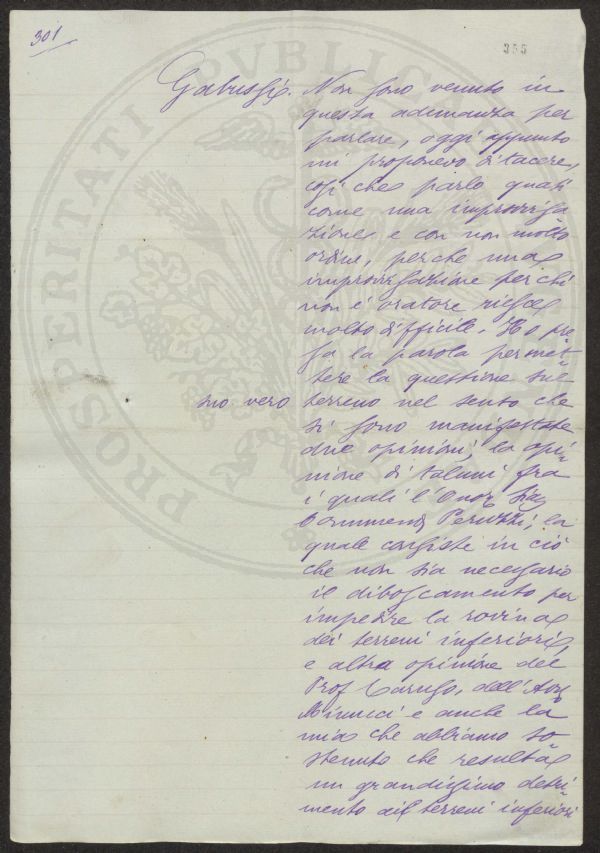 301
355
Gabussi. Non sono venuto in
questa adunanza per
parlare, oggi appunto
mi proponevo di tacere,
così che parlo quasi
come una improvvisa
zione e con non molto
ordine, perché una
improvvisazione per chi
non è oratore riesce
molto difficile. Ho pre
sa la parola per met-
tere la questione sul
suo vero terreno nel senso che
si sono manifestate
due opinioni, la opi-
nione di taluni fra
i quali l'Onor Sig
Commend Peruzzi, la
quale consiste in ciò
che non sia necessario
il diboscamento per
impedire la rovina
dei terreni inferiori,
e altra opinione del
Prof Caruso, dell'Avv
Minucci e anche la
mia che abbiamo so
stenuto che resulta
un grandissimo detri-
mento ai terreni inferiori
PROSPERITATI PVBLICA